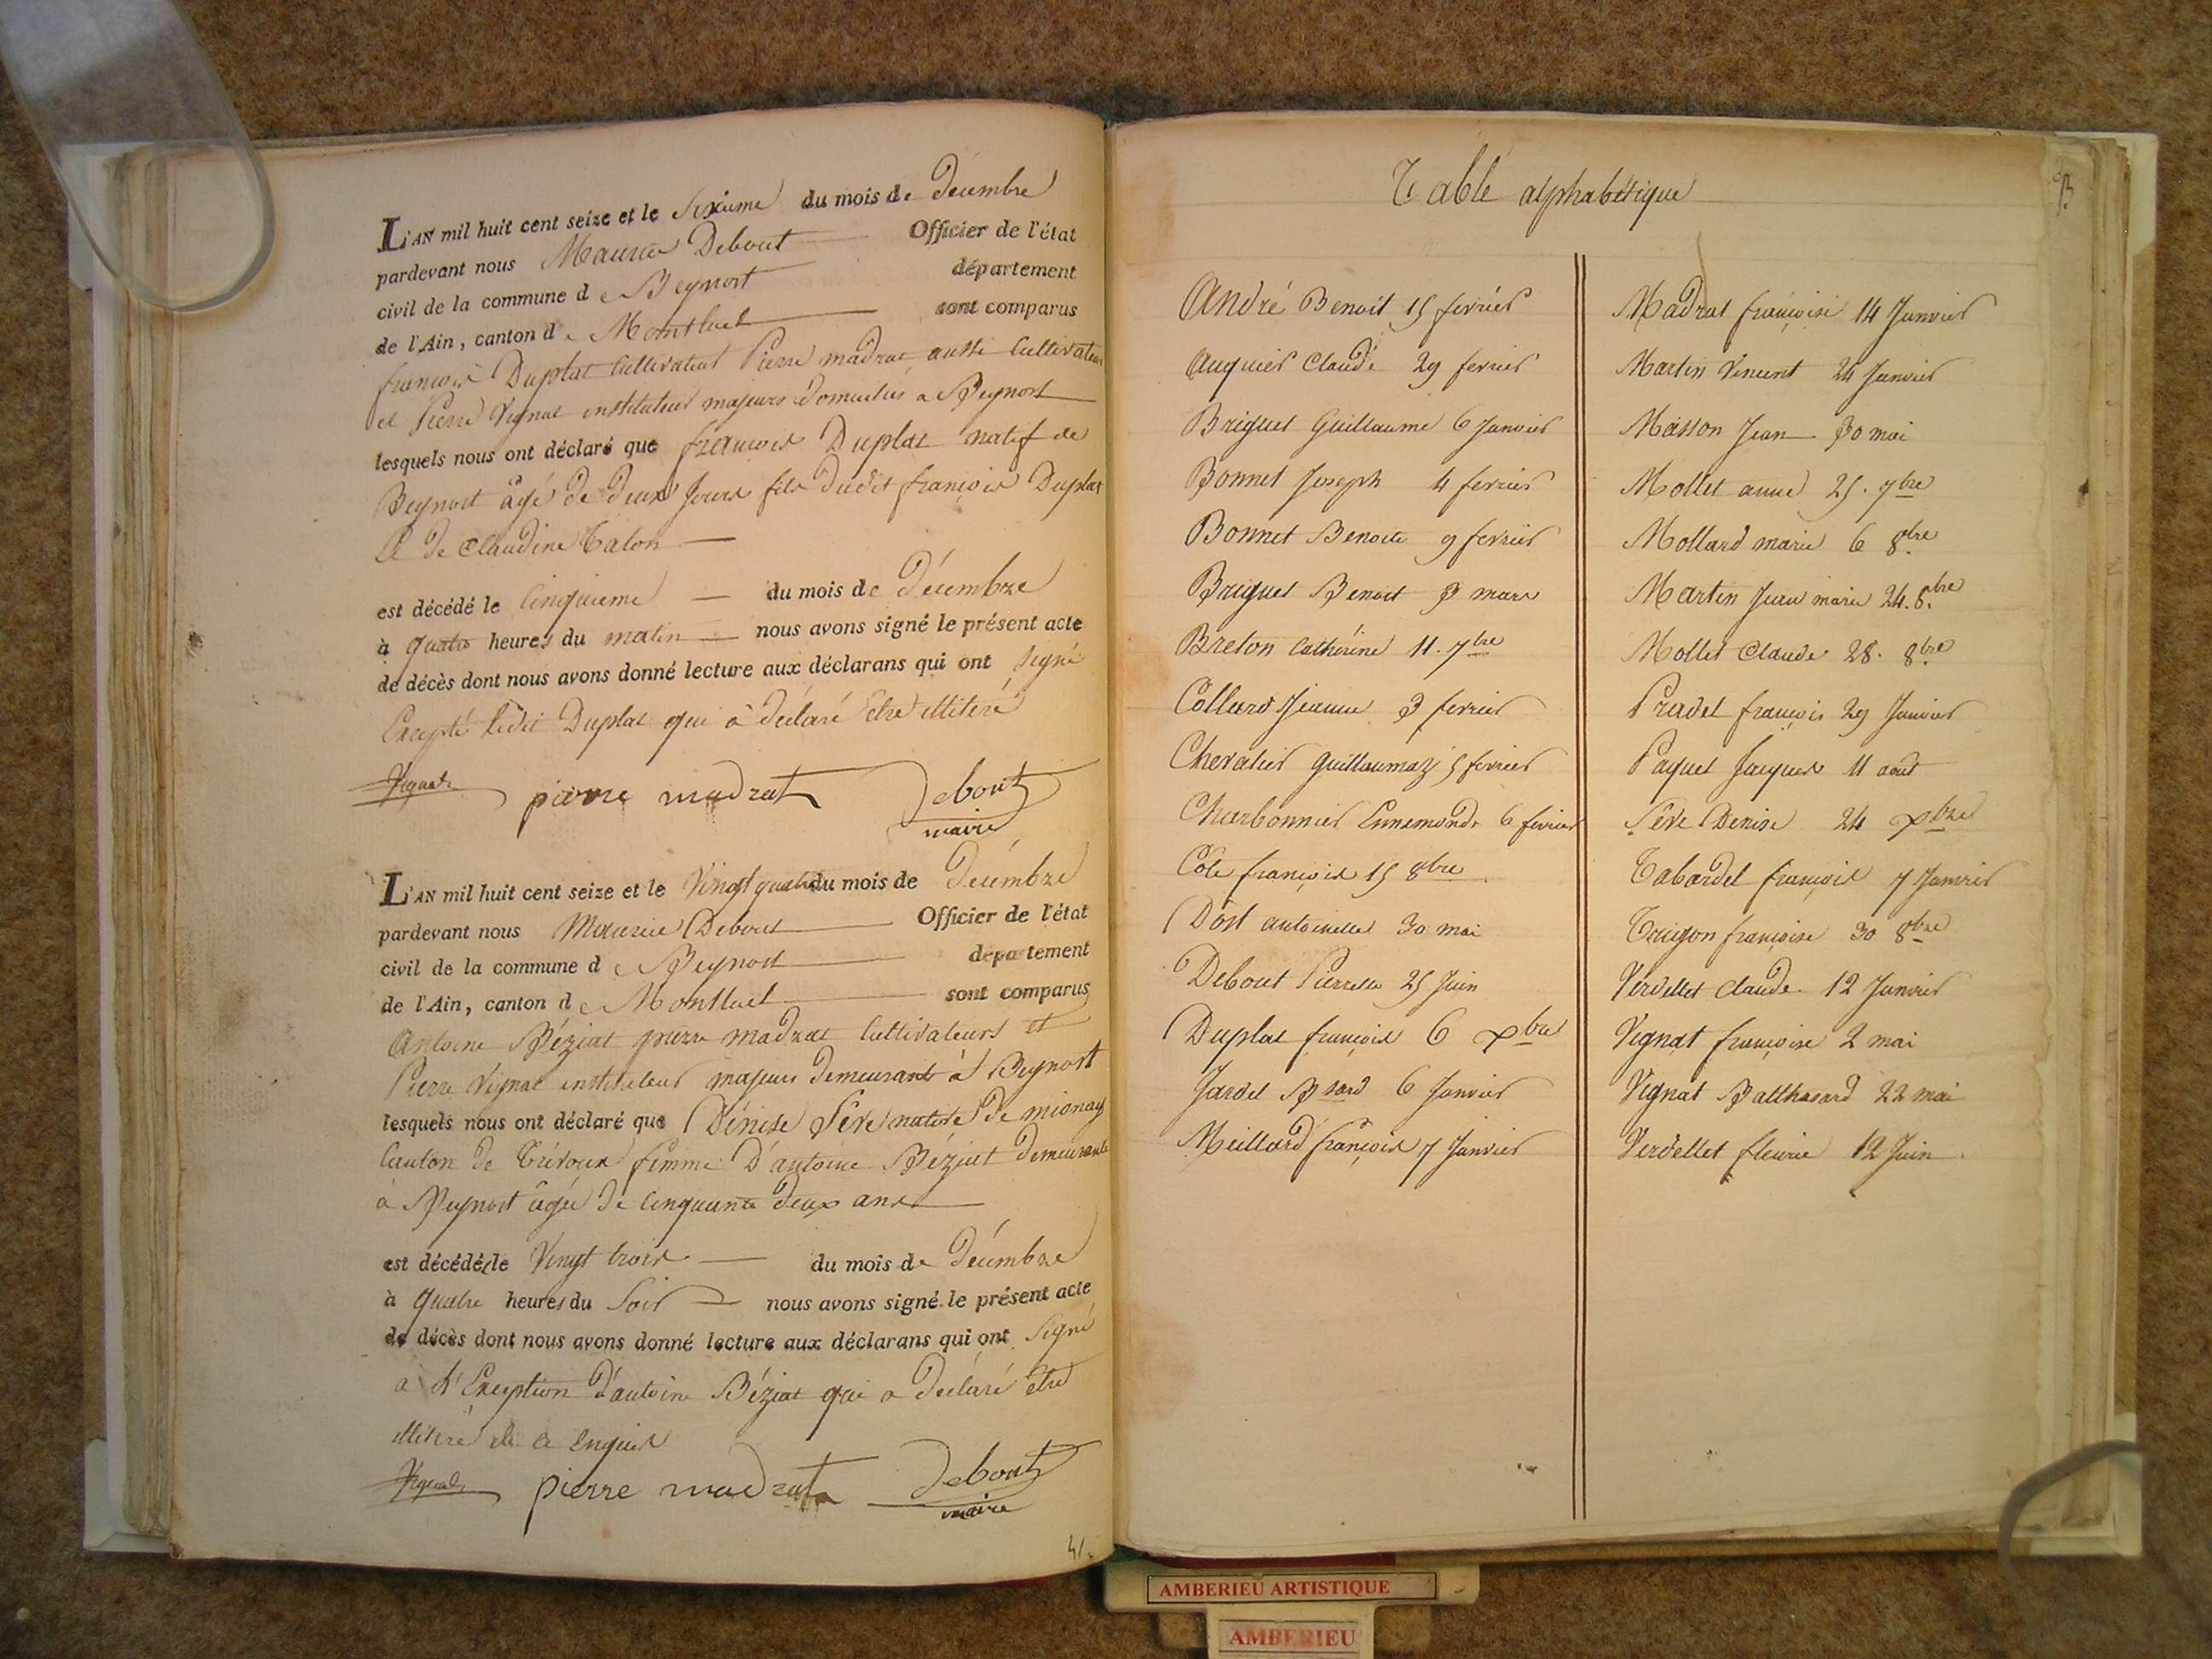 L'AN mil huit cent seize et le Sixieme du mois de Décembre
pardevant nous Maurice Debout Officier de l'état
civil de la commune de Beynost département
de l'Ain, canton de Montluel sont comparus
françois Duplat Cultivateur Pierre madrat aussi Cultivateur
et Pierre Vignat instituteur majeurs domiciliés a Beynost
lesquels nous ont déclaré que françois Duplat natif de
Beynost âgé de deux Jours fils dudit françois Duplat
et de Claudine Talon
est décédé le Cinquieme du mois de Décembre
à quatre heures du matin nous avons signé le présent acte
de décès dont nous avons donné lecture aux déclarans qui ont signé
Excepté ledit Duplat qui à déclaré être illiteré
Vignat pierre madrat Debout
maire
L'AN mil huit cent seize et le Vingt quatre du mois de Décembre
pardevant nous Maurice Debout Officier de l'état
civil de la commune de Beynost département
de l'Ain, canton de Montluel sont comparus
Antoine Béziat pierre madrat Cultivateurs et
Pierre Vignat instituteur majeurs demeurant à Beynost
lesquels nous ont déclaré que Dénise Sêve native de mionay
Canton de Trévoux femme D'antoine Béziat demeurante
à Beynost âgée de Cinquante deux ans
est décédée le Vingt trois du mois de Décembre
à quatre heures du Soir nous avons signé le présent acte
de décès dont nous avons donné lecture aux déclarans qui ont Signé
a L'Exeption d'antoine Béziat qui a déclaré être
illiteré de ce Enquis
Vignat pierre madrat Debout
maire
41.
Table alphabétique
André Benoit 15 fevrier
Auquier Claude 29 fevrier
Briguet Guillaume 6 Janvier
Bonnet Joseph 4 fevrier
Bonnet Benoite 9 fevrier
Briguet Benoit 3 mars
Breton Cathérine 11. 7bre
Collard Jeanne 3 fevrier
Chevalier Guillaumaz 5 fevrier
Charbonnier Ennemonde 6 fevrier
Côte françois 15 8bre
Dost antoinette 30 mai
Debout Pierrette 25 Juin
Duplat françois 6 Xbre
Jardel Bnard 6 Janvier
Meillard françois 7 Janvier
Madrat françoise 14 Janvier
Martin Vincent 24 Janvier
Masson Jean 30 mai
Mollet anne 25. 7bre
Mollard marie 6 8bre
Martin Jean marie 24. 8bre
Mollet Claude 28. 8bre
Pradel françois 29 Janvier
Paquet Jacques 11 août
Sêve Denise 24 Xbre
Tabardel françois 7 Janvier
françoise 30 8bre
Verdellet Claude 12 Janvier
Vignat françoise 2 mai
Vignat Balthasard 22 mai
Verdellet fleurie 12 Juin
AMBERIEU ARTISTIQUE
AMBERIEU